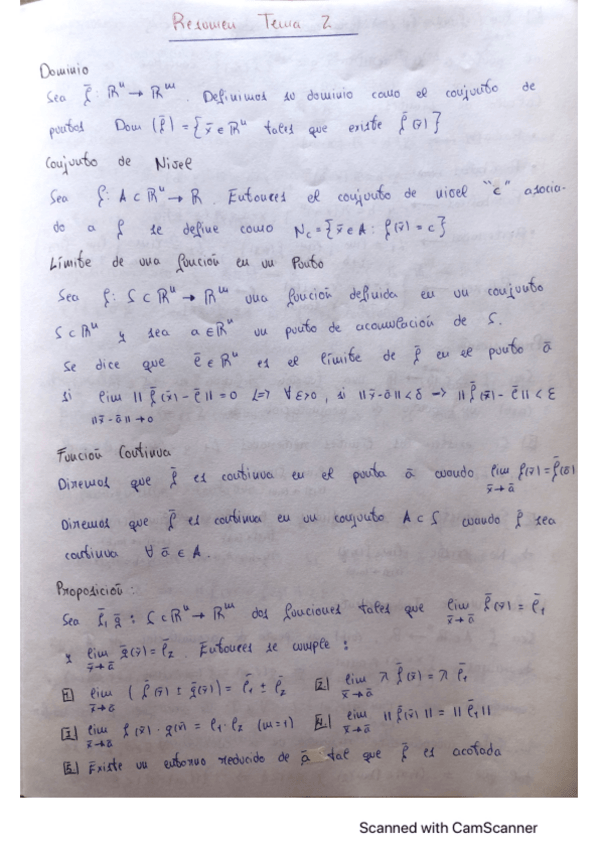 Resumen Tema 2
Dominio
Sea f̄: ℝⁿ → ℝᵐ. Definimos su dominio como el conjunto de
puntos Dom (f̄) = {x̄ ∈ ℝⁿ tales que existe f̄(x̄)}
Conjunto de Nivel
Sea f: A ⊂ ℝⁿ → ℝ. Entonces el conjunto de nivel "c" asocia-
do a f se define como N_c = {x̄ ∈ A : f(x̄) = c}
Límite de una función en un Punto
Sea f: S ⊂ ℝⁿ → ℝᵐ una función definida en un conjunto
S ⊂ ℝⁿ y sea a ∈ ℝⁿ un punto de acumulación de S.
Se dice que l̄ ∈ ℝⁿ es el límite de f̄ en el punto ā
si lim ||f̄(x̄) - l̄|| = 0 <=> ∀ε>0, si ||x̄-ā|| < δ -> ||f̄(x̄) - l̄|| < ε
||x̄-ā|| → 0
Función Continua
Diremos que f̄ es continua en el punto ā cuando lim f(x̄) = f̄(ā)
x̄→ā
Diremos que f̄ es continua en un conjunto A ⊂ S cuando f̄ sea
continua ∀ ā ∈ A.
Proposición:
Sea f̄, ḡ : S ⊂ ℝⁿ → ℝᵐ dos funciones tales que lim f̄(x̄) = l̄₁
x̄→ā
y lim ḡ(x̄) = l̄₂. Entonces se cumple:
x̄→ā
1 lim (f̄(x̄) ± ḡ(x̄)) = l̄₁ ± l̄₂ 2 lim λ f̄(x̄) = λ l̄₁
x̄→ā x̄→ā
3 lim f(x̄) · g(x̄) = l₁ · l₂ (m=1) 4 lim ||f̄(x̄)|| = ||l̄₁||
x̄→ā x̄→ā
5 Existe un entorno reducido de ā tal que f̄ es acotada
Scanned with CamScanner